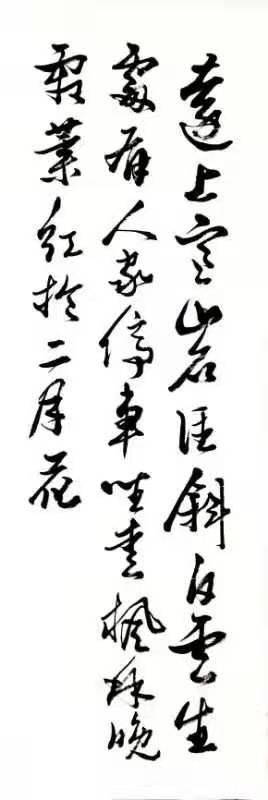 遠上寒山石径斜白雲生
處有人家停車坐愛楓林晚
霜葉紅於二月花